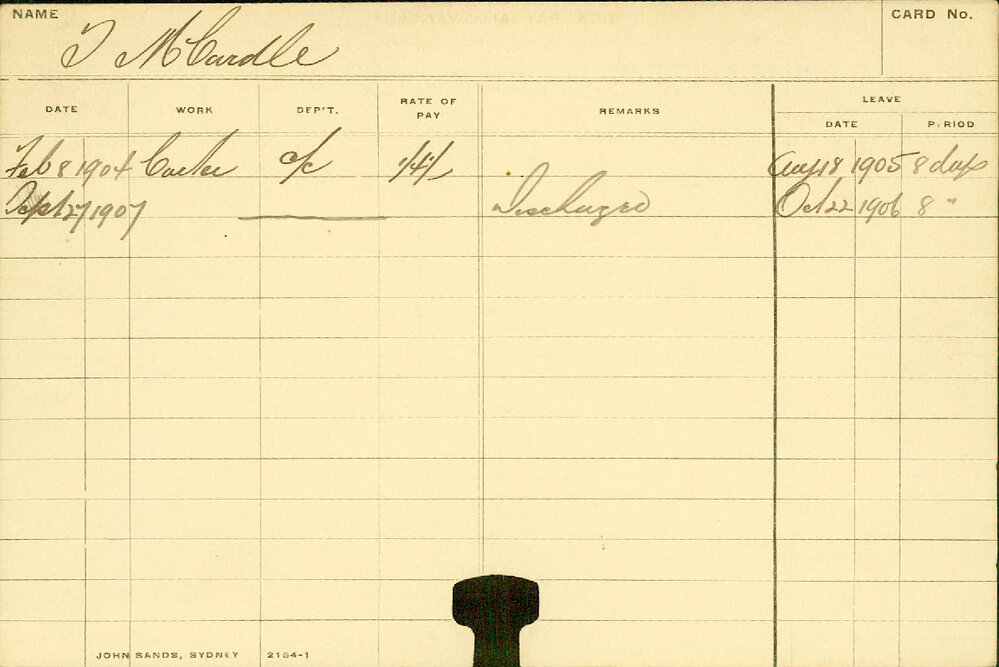 NAME
CARD No.
McCardle
DATE WORK DEP'T. RATE OF PAY REMARKS LEAVE
DATE P:RIOD
Feb 8 1904 c/c Aug 18 1905 8 days
Sept 27 1907 Discharged Oct 22 1906 8 "
JOHN SANDS, SYDNEY 2154-1